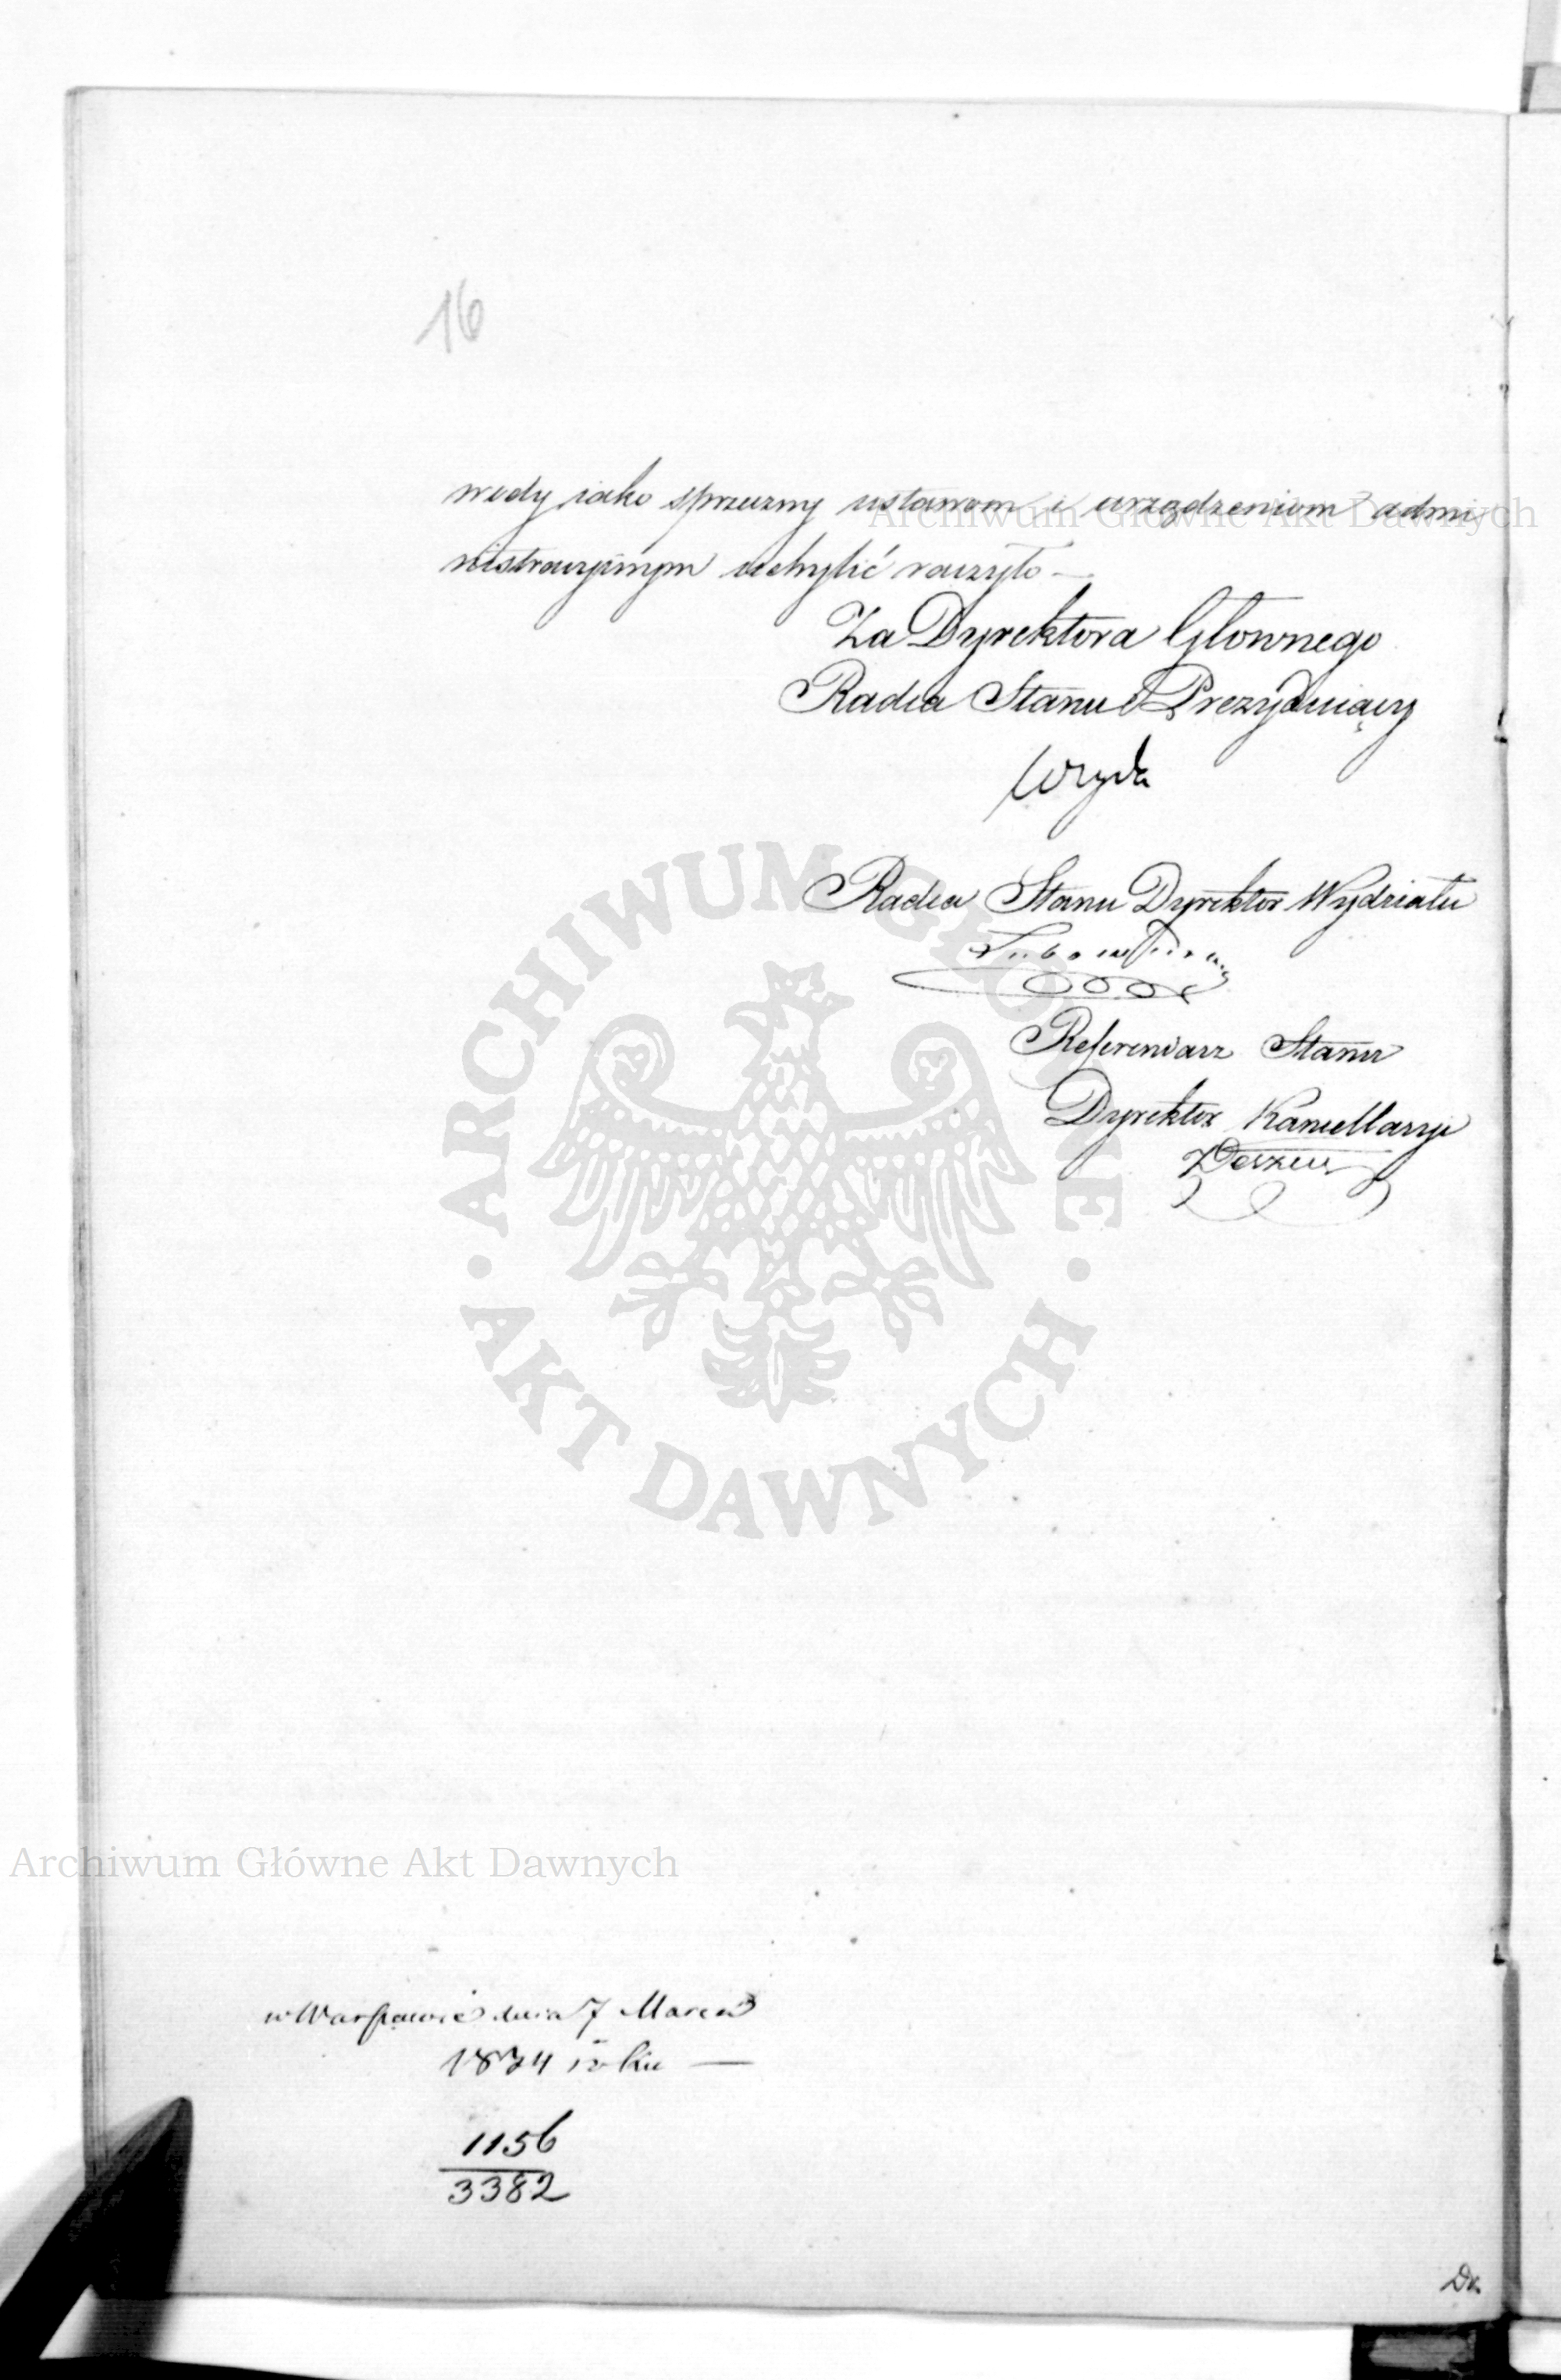 16
wody iako sprzeczny ustawom i urządzeniom admi
nistracyinym uchylić raczyło —
Za Dyrektora Głownego
Radca Stanu Prezyduiący
Radca Stanu Dyrektor Wydziału
Referendarz Stanu
Dyrektor Kancellaryi
w Warszawie dnia 7 Marca
1834 roku —
1156
3382
Archiwum Główne Akt Dawnych
Archiwum Główne Akt Dawnych
ARCHIWUM GŁÓWNE
AKT DAWNYCH